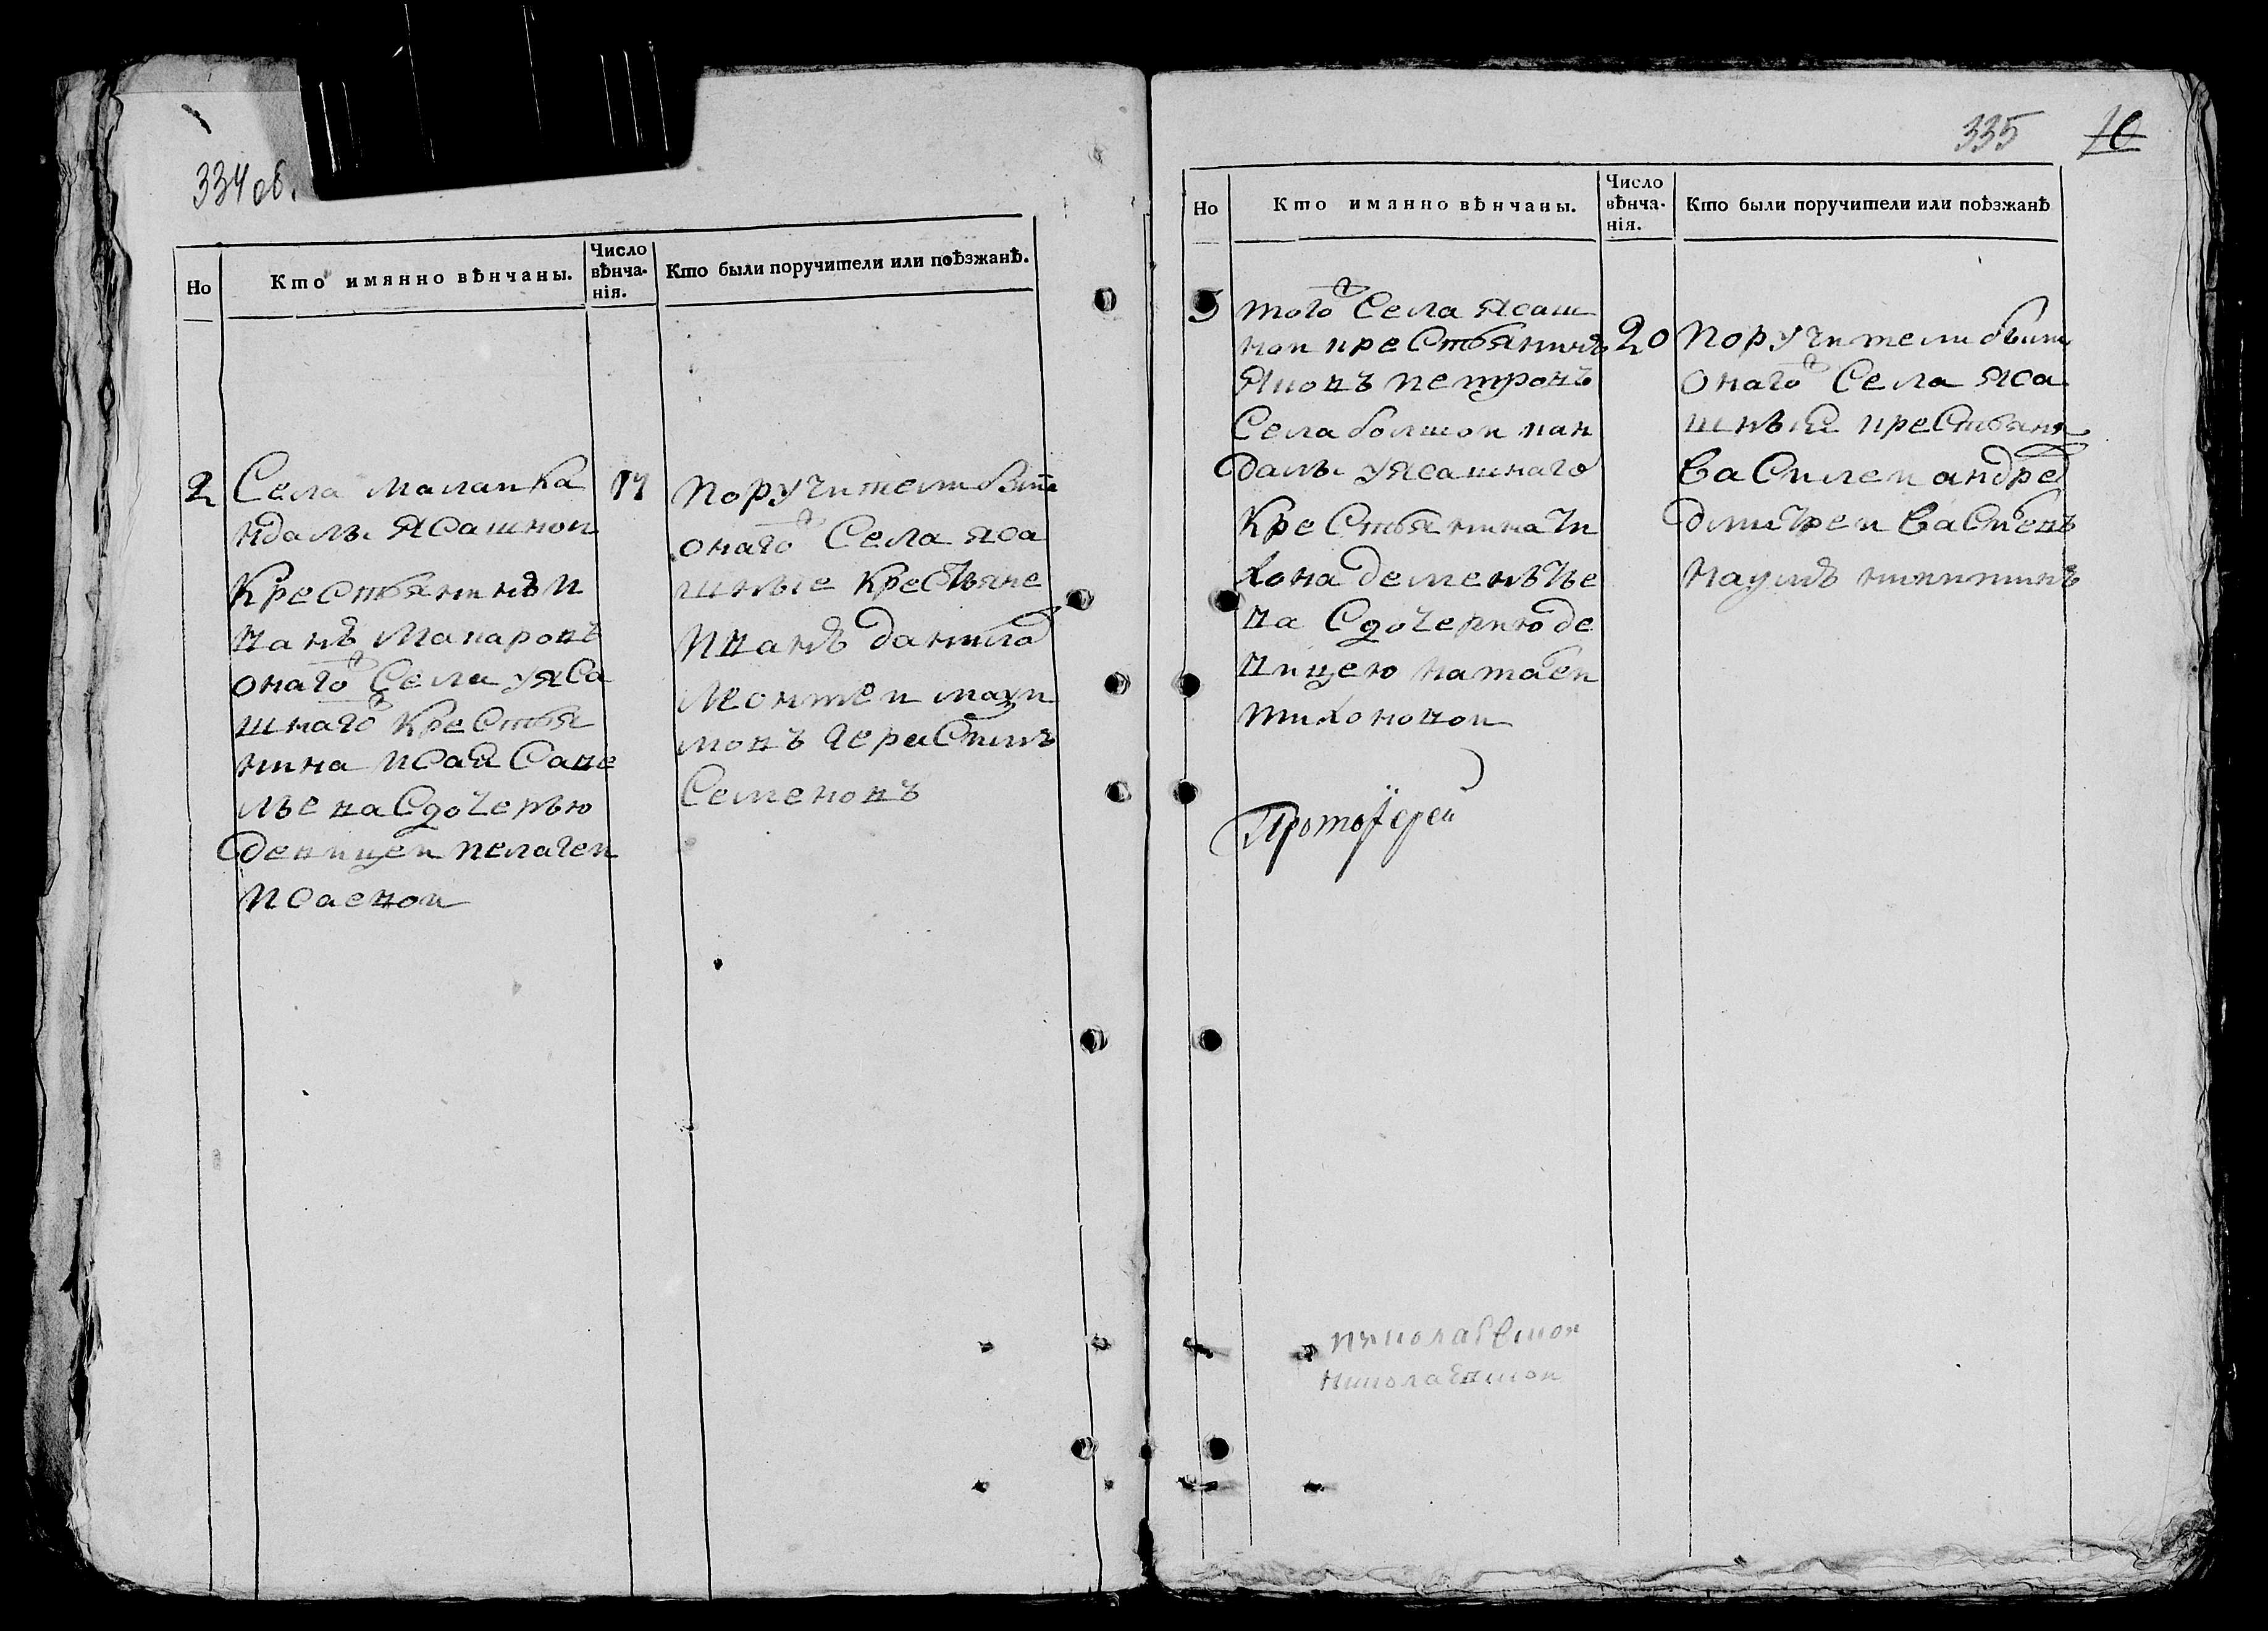 334 об.
Но
Кто имянно вѣнчаны.
Число вѣнча-нія.
Кто были поручители или поѣзжанѣ.
2
Села малаи ка
ндалы ясашнои
крестьянинъ и
ванъ макаровъ
онаго села у яса
шнаго крестья
нина исая саве
льева сдочерью
девицеи пелагеи
исаевои
14
поручители были
онаго села яса
шные крестьяне
иванъ данило
леонтеи
семеновъ
335
10
Но
Кто имянно вѣнчаны.
Число вѣнча-нія.
Кто были поручители или поѣзжанѣ
3
того села ясаш
нои крестьянинъ
яковъ петровъ
села болшои кан
далы у ясашнаго
крестьянина ти
хона деменьтье
ва сдочерию де
вицею
тихоновои
20
поручители были
онаго села яса
шныя крестьяня
василеи андрео
дмитреи
наумъ никитинъ
Протоіерей